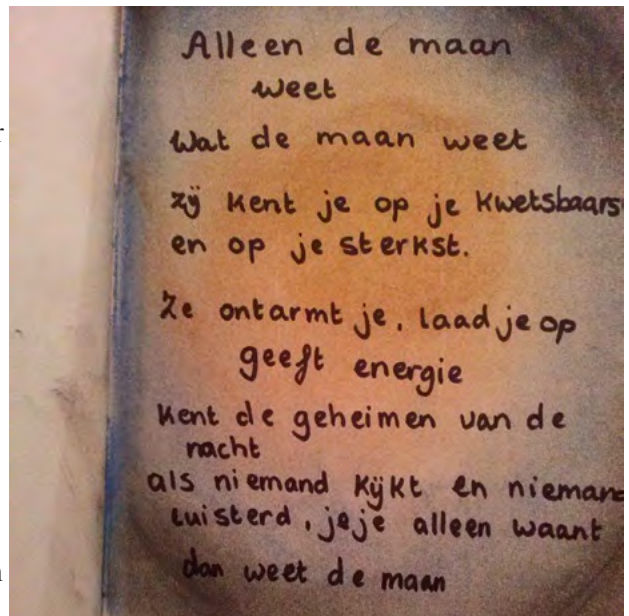 Alleen de maan
weet
Wat de maan weet
zij kent je op je kwetsbaars
en op je sterkst.
Ze ontarmt je, laad je op
geeft energie
kent de geheimen van de
nacht
als niemand kijkt en nieman
luisterd, jeje alleen waant
dan weet de maan